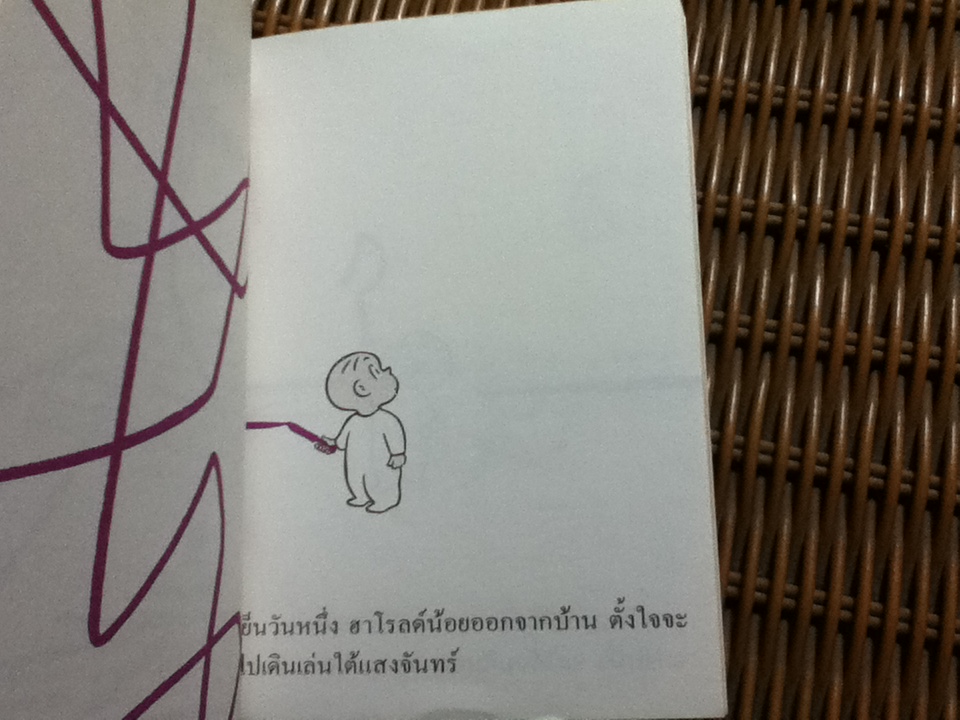 ย็นวันหนึ่ง ฮาโรลด์น้อยออกจากบ้าน ตั้งใจจะ
ไปเดินเล่นใต้แสงจันทร์